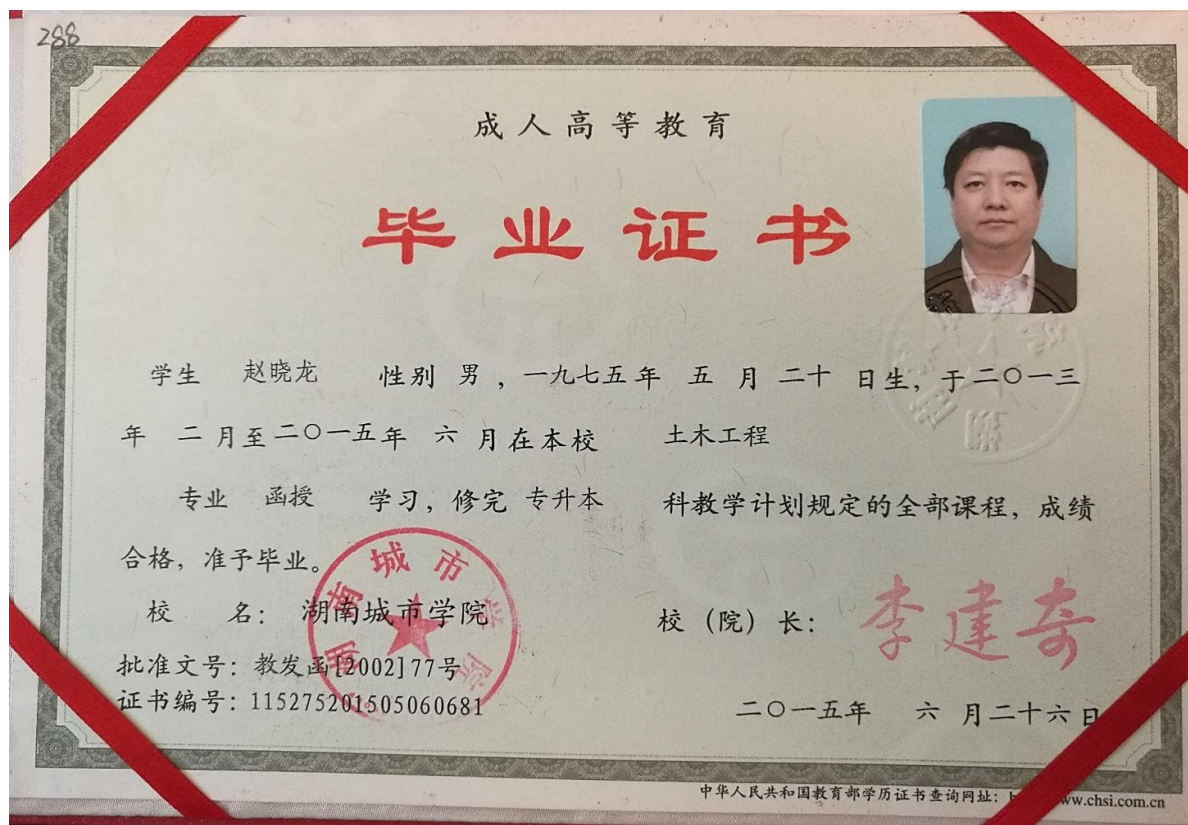 288
成人高等教育
毕业证书
学生 赵晓龙 性别 男 ，一九七五年 五 月 二十 日生，于二〇一三
年 二 月至二〇一五年 六 月在本校 土木工程
专业 函授 学习，修完 专升本 科教学计划规定的全部课程，成绩
合格，准予毕业。
校 名： 湖南城市学院 校（院）长： 李建奇
湖南城市学院
批准文号：教发函[2002]77号
证书编号：115275201505060681
二〇一五年 六 月二十六日
中华人民共和国教育部学历证书查询网址： www.chsi.com.cn